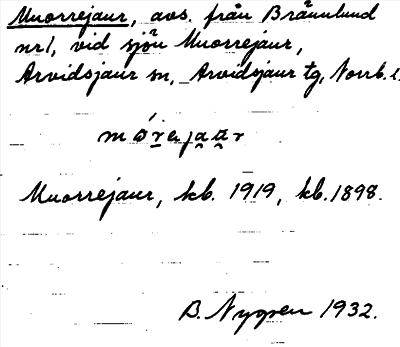 Muorrejaur, avs. från Brännlund
nr 1, vid sjön Muorrejaur,
Arvidsjaur sn, Arvidsjaur tg, Norrb. l.
Muorrejaur, kb. 1919, kb. 1898.
B. Nygren 1932.